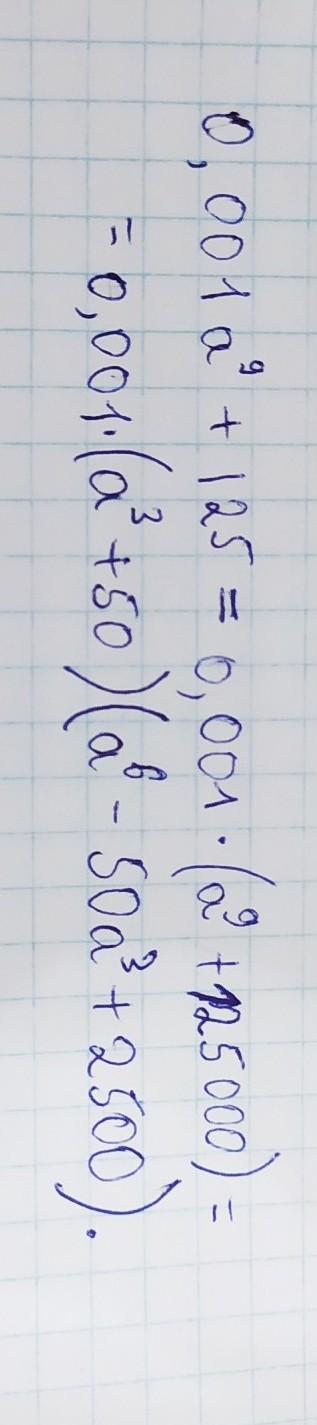 0,001a⁹ + 125 = 0,001 · (a⁹ + 125000) =
= 0,001·(a³ + 50)(a⁶ - 50a³ + 2500).